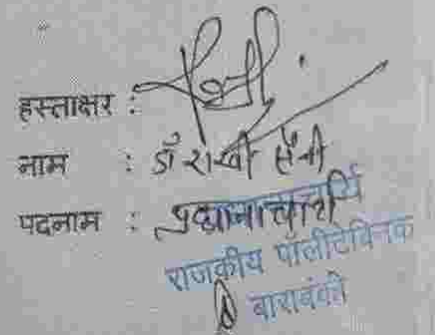 हस्ताक्षर :
नाम : डॉ राखी सैनी
पदनाम : प्रधानाचार्या
प्रधानाचार्य
राजकीय पालीटेक्निक
बाराबंकी